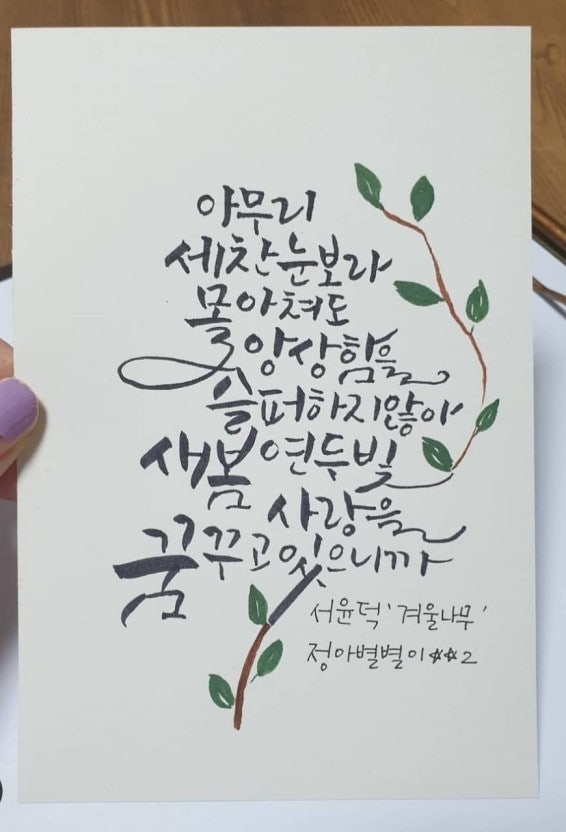 아무리
세찬 눈보라
몰아쳐도
앙상함을
슬퍼하지않아
새봄 연두빛
사랑을
꿈꾸고 있으니까
서윤덕 '겨울나무'
정아별별이☆☆2